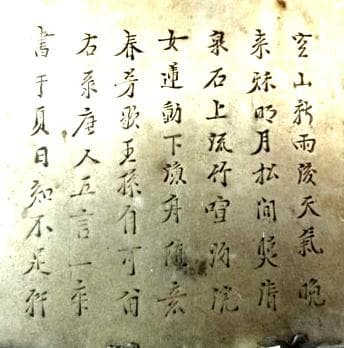 空山新雨後天氣晚
来秌明月松间照清
泉石上流竹喧归浣
女蓮動下漁舟隨意
春芳歇王孫自可留
右系唐人五言一章
書于夏日知不足軒